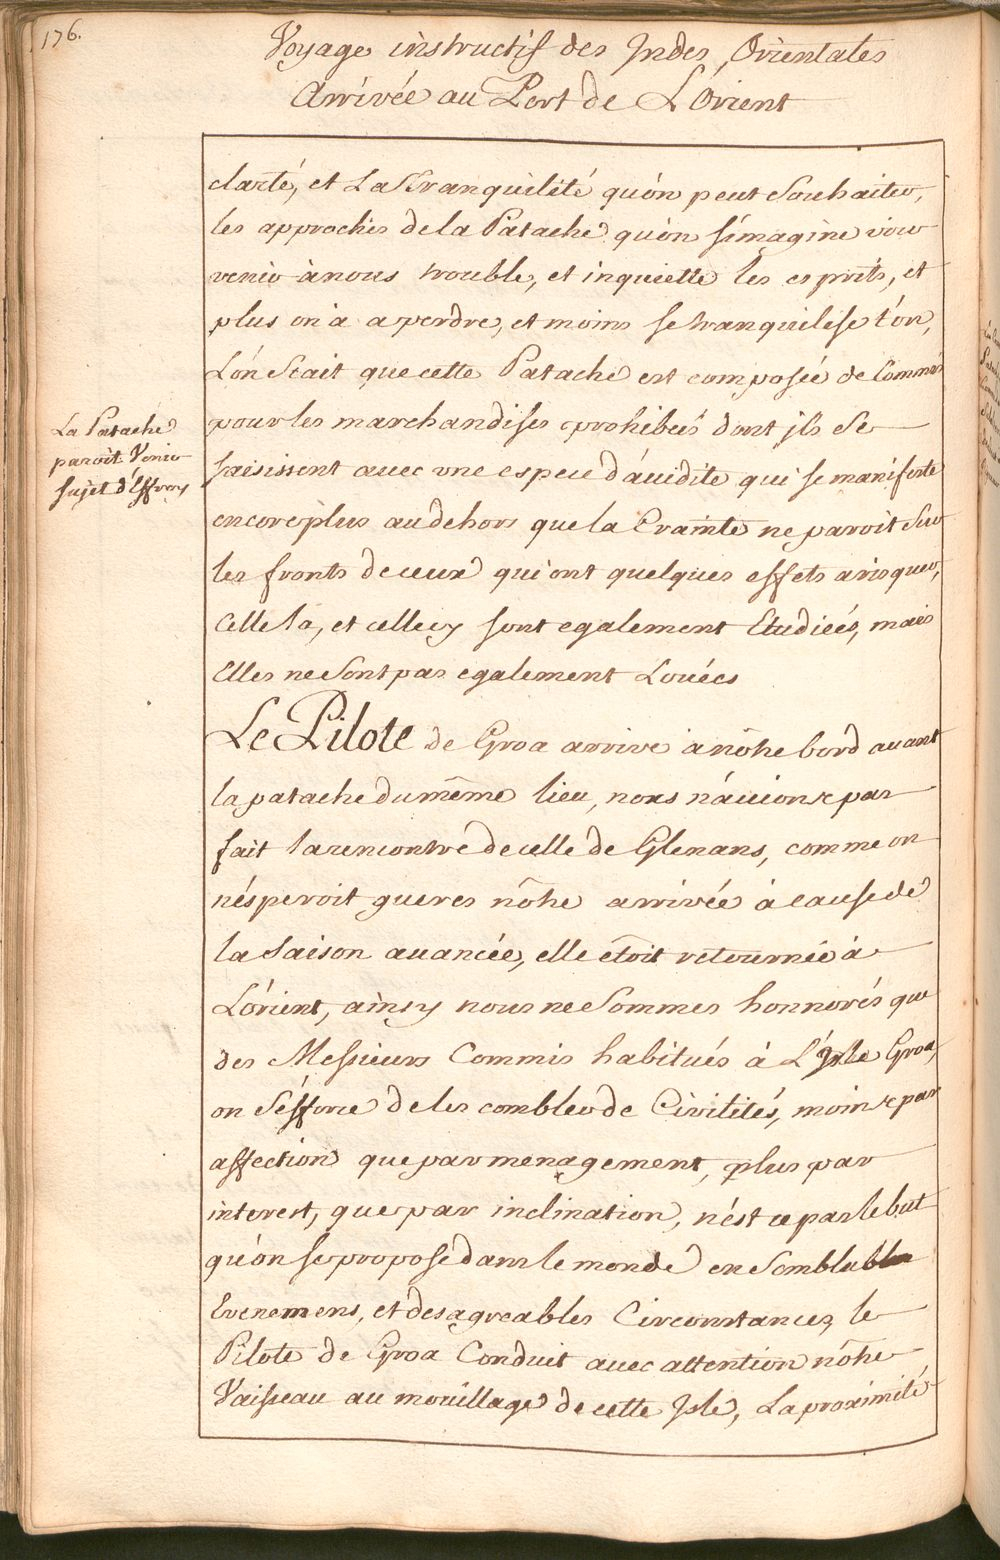 176.
Voyage instructif des Indes Orientales
Arrivée au Port de L'Orient
clarté, et La Tranquilité qu'on peut Souhaiter,
les approches de la Patache qu'on s'imagine voir
venir à nous trouble, et inquiette les esprits, et
plus on à a perdre, et moins se tranquilise t'on,
L'on Scait que cette Patache est composée de Commis
pour les marchandises prohibeés dont jls Se
saisissent avec une espece d'auidite qui se manifeste
encore plus au dehors que la Crainte ne paroit Sur
les fronts de ceux qui ont quelques effets a risquer,
Celle la, et celle cy sont egalement Etudieés, mais
Elles ne Sont pas egalement Louées
La Patache
paroit Venir
sujet d'Effroy
Le Pilote de Groa arrive a nôtre bord auant
la patache du même lieu, nous n'auions pas
fait la rencontre de celle de Glenans, comme on
n'esperoit gueres nôtre arrivée à cause de
la Saison auancée, elle étoit retournée à
L'orient, ainsy nous ne Sommes honnorés que
des Messieurs Commis habitués à L'Isle Groa,
on S'éfforce de les combler de Civilités, moins par
affection que par menagement, plus par
interest, que par inclination, n'est ce pas le but
qu'on se propose dans le monde en Semblables
Evenemens, et desagreables Circonstances, le
Pilote de Groa Conduit auec attention nôtre
Vaisseau au moüillage de cette Isle, La proximité